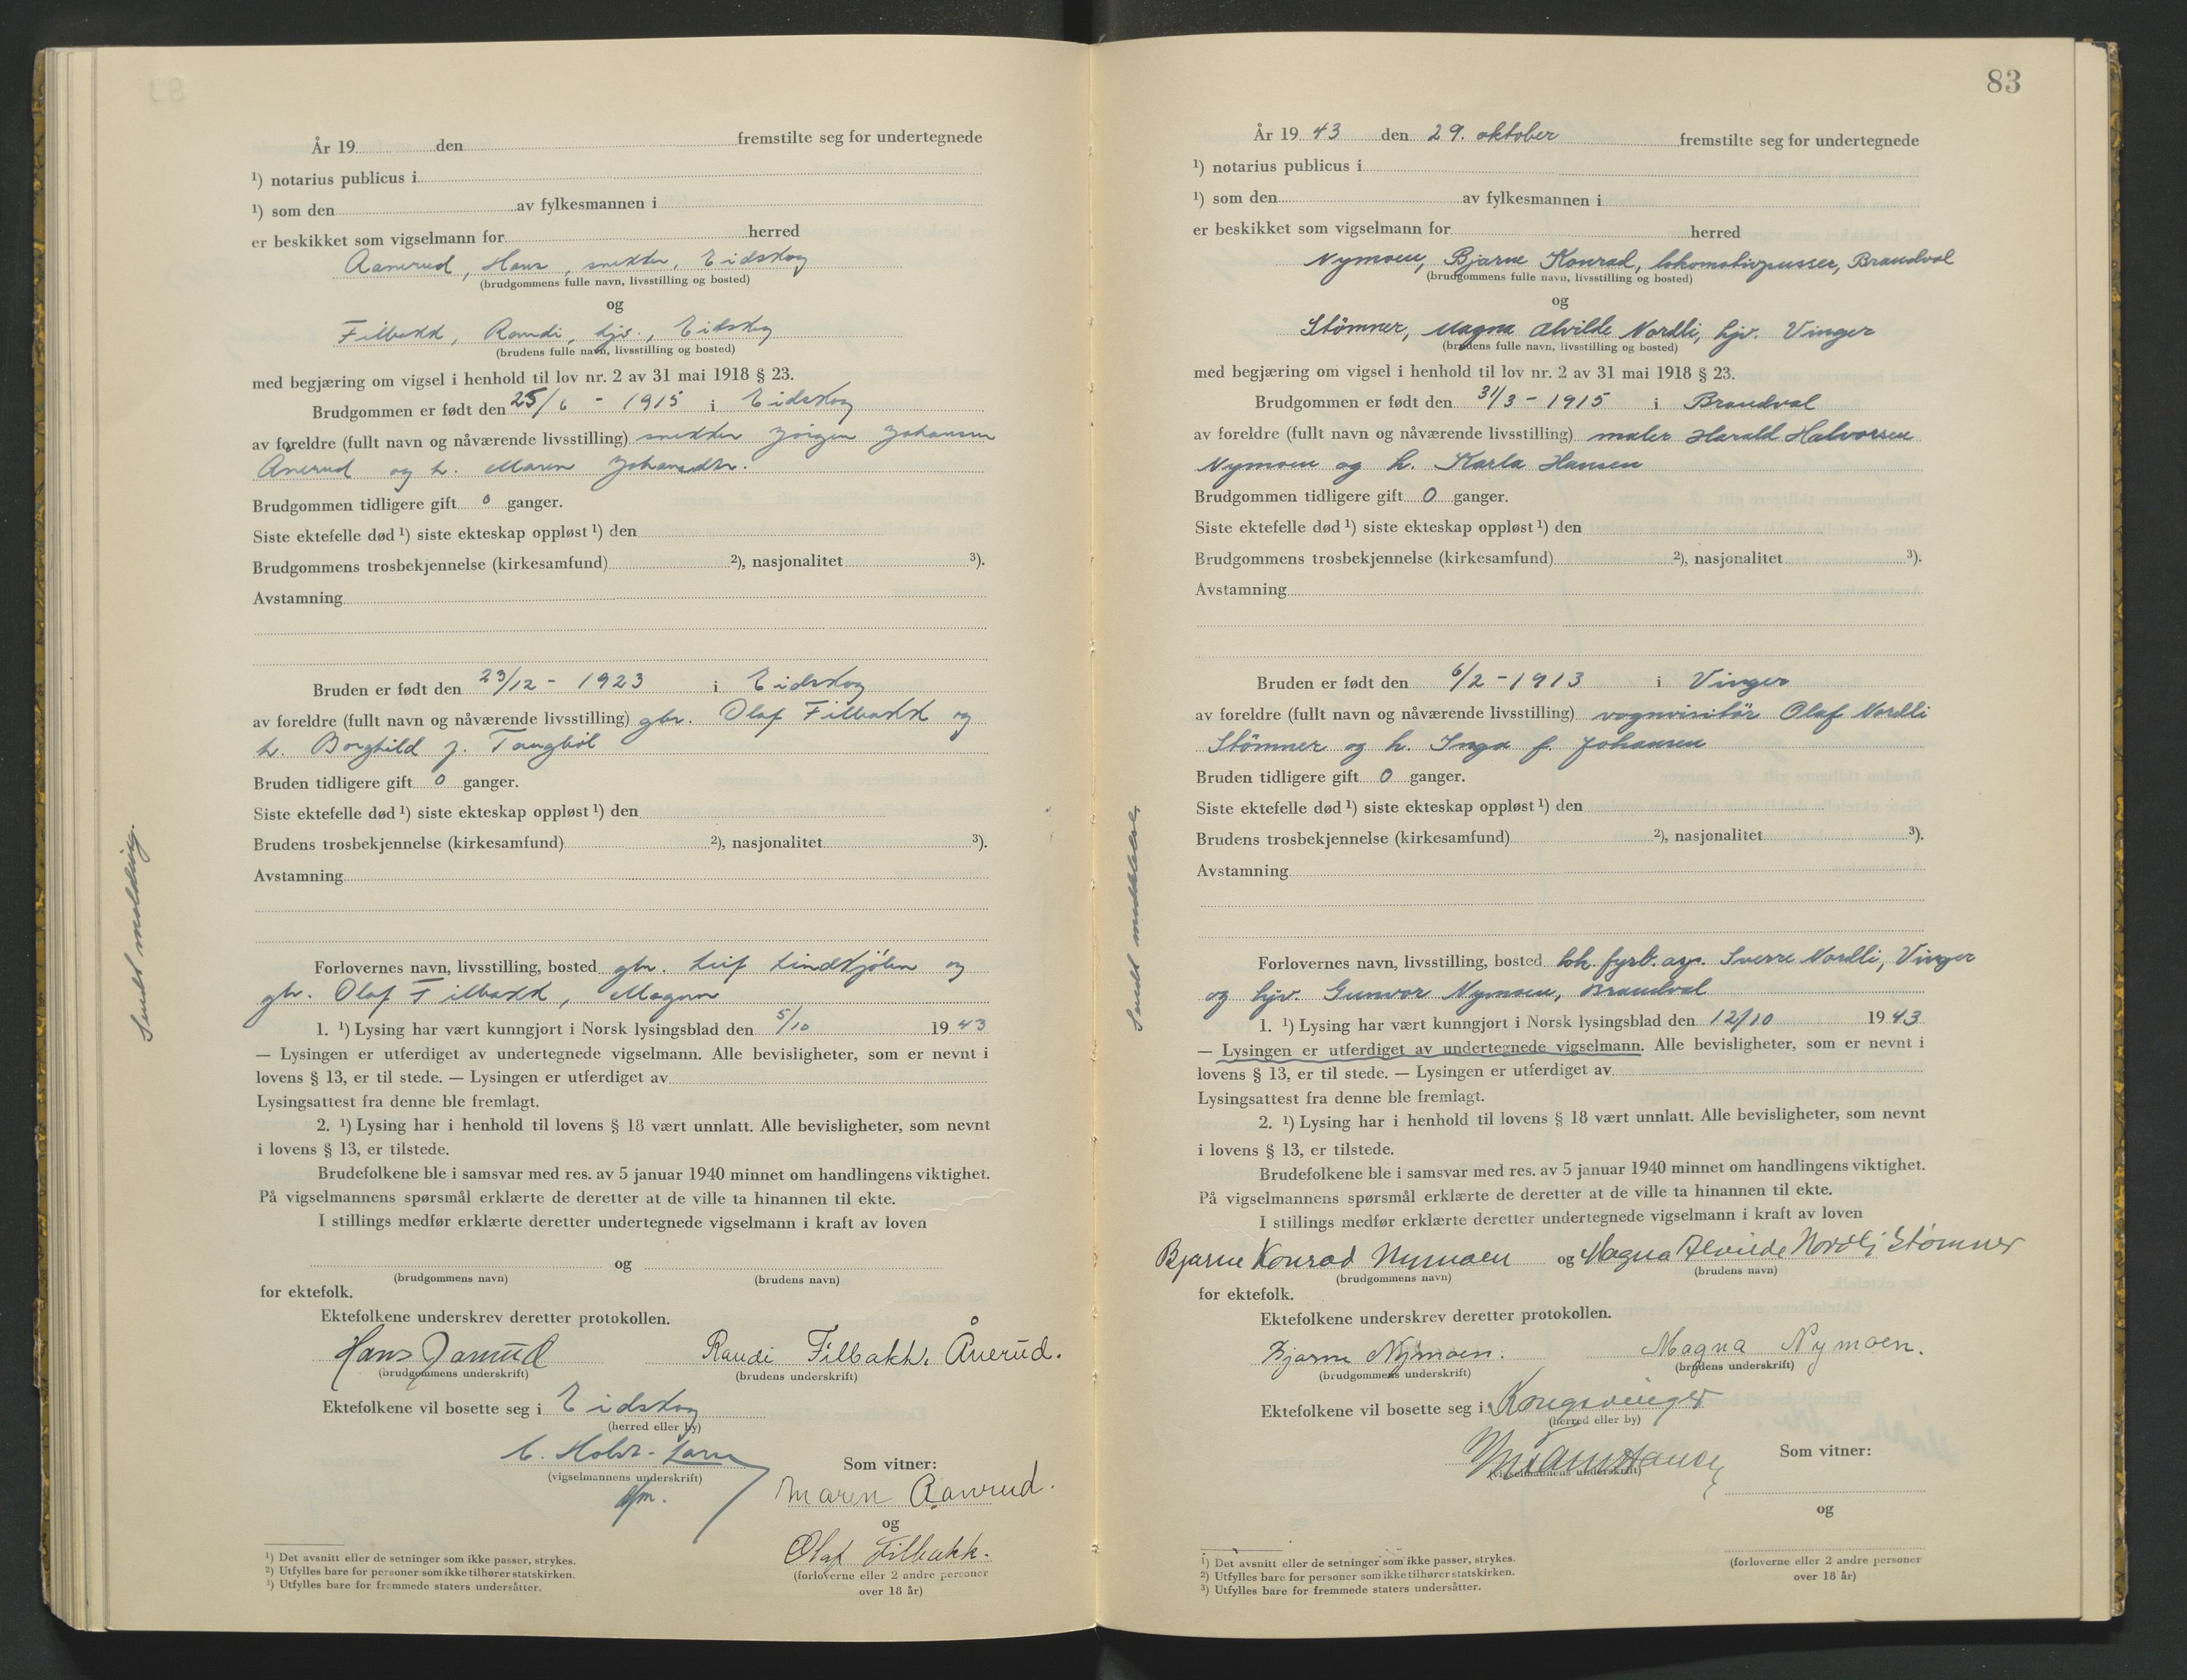 År 19 den fremstilte seg for undertegnede
¹) notarius publicus i
¹) som den av fylkesmannen i
er beskikket som vigselmann for herred
Aanerud, Hans, snekker, Eidskog
(brudgommens fulle navn, livsstilling og bosted)
og
Filbakk, Randi, hjv., Eidskog
(brudens fulle navn, livsstilling og bosted)
med begjæring om vigsel i henhold til lov nr. 2 av 31 mai 1918 § 23.
Brudgommen er født den 25/6 - 1915 i Eidskog
av foreldre (fullt navn og nåværende livsstilling) snekker Jörgen Johansen
Ånerud og h. Maren Johansdtr.
Brudgommen tidligere gift 0 ganger.
Siste ektefelle død ¹) siste ekteskap oppløst ¹) den
Brudgommens trosbekjennelse (kirkesamfund) ²), nasjonalitet ³).
Avstamning
Bruden er født den 23/12 - 1923 i Eidskog
av foreldre (fullt navn og nåværende livsstilling) gbr. Olaf Filbakk og
h. Borghild f. Taugböl
Bruden tidligere gift 0 ganger.
Siste ektefelle død ¹) siste ekteskap oppløst ¹) den
Brudens trosbekjennelse (kirkesamfund) ²), nasjonalitet ³).
Avstamning
Forlovernes navn, livsstilling, bosted gbr. Leif Lindkjölen og
gbr. Olaf Filbakk, Magnor
1. ¹) Lysing har vært kunngjort i Norsk lysingsblad den 5/10 1943
— Lysingen er utferdiget av undertegnede vigselmann. Alle bevisligheter, som er nevnt i
lovens § 13, er til stede. — Lysingen er utferdiget av
Lysingsattest fra denne ble fremlagt.
2. ¹) Lysing har i henhold til lovens § 18 vært unnlatt. Alle bevisligheter, som nevnt
i lovens § 13, er tilstede.
Brudefolkene ble i samsvar med res. av 5 januar 1940 minnet om handlingens viktighet.
På vigselmannens spørsmål erklærte de deretter at de ville ta hinannen til ekte.
I stillings medfør erklærte deretter undertegnede vigselmann i kraft av loven
og
(brudgommens navn) (brudens navn)
for ektefolk.
Ektefolkene underskrev deretter protokollen.
Hans Aanerud Randi Filbakk Ånerud.
(brudgommens underskrift) (brudens underskrift)
Ektefolkene vil bosette seg i Eidskog
(herred eller by)
C. Holst-Larsen
(vigselmannens underskrift)
Som vitner:
Maren Aanrud.
og
Olaf Filbakk.
(forloverne eller 2 andre personer
over 18 år)
¹) Det avsnitt eller de setninger som ikke passer, strykes.
²) Utfylles bare for personer som ikke tilhører statskirken.
³) Utfylles bare for fremmede staters undersåtter.
Sendt melding.
83
År 1943 den 29. oktober fremstilte seg for undertegnede
¹) notarius publicus i
¹) som den av fylkesmannen i
er beskikket som vigselmann for herred
Nymoen, Bjarne Konrad, lokomotivpusser, Brandval
(brudgommens fulle navn, livsstilling og bosted)
og
Stömner, Magna Alvilde Nordli, hjv. Vinger
(brudens fulle navn, livsstilling og bosted)
med begjæring om vigsel i henhold til lov nr. 2 av 31 mai 1918 § 23.
Brudgommen er født den 31/3 - 1915 i Brandval
av foreldre (fullt navn og nåværende livsstilling) maler Harald Halvorsen
Nymoen og h. Karla Hansen
Brudgommen tidligere gift 0 ganger.
Siste ektefelle død ¹) siste ekteskap oppløst ¹) den
Brudgommens trosbekjennelse (kirkesamfund) ²), nasjonalitet ³).
Avstamning
Bruden er født den 6/2 - 1913 i Vinger
av foreldre (fullt navn og nåværende livsstilling) vognvisitör Olaf Nordli
Stömner og h. Inga f. Johansen
Bruden tidligere gift 0 ganger.
Siste ektefelle død ¹) siste ekteskap oppløst ¹) den
Brudens trosbekjennelse (kirkesamfund) ²), nasjonalitet ³).
Avstamning
Forlovernes navn, livsstilling, bosted lok. fyrb. asp. Sverre Nordli, Vinger
og hjv. Gunvor Nymoen, Brandval
1. ¹) Lysing har vært kunngjort i Norsk lysingsblad den 12/10 1943
— Lysingen er utferdiget av undertegnede vigselmann. Alle bevisligheter, som er nevnt i
lovens § 13, er til stede. — Lysingen er utferdiget av
Lysingsattest fra denne ble fremlagt.
2. ¹) Lysing har i henhold til lovens § 18 vært unnlatt. Alle bevisligheter, som nevnt
i lovens § 13, er tilstede.
Brudefolkene ble i samsvar med res. av 5 januar 1940 minnet om handlingens viktighet.
På vigselmannens spørsmål erklærte de deretter at de ville ta hinannen til ekte.
I stillings medfør erklærte deretter undertegnede vigselmann i kraft av loven
Bjarne Konrad Nymoen og Magna Alvilde Nordli Stömner
(brudgommens navn) (brudens navn)
for ektefolk.
Ektefolkene underskrev deretter protokollen.
Bjarne Nymoen. Magna Nymoen.
(brudgommens underskrift) (brudens underskrift)
Ektefolkene vil bosette seg i Kongsvinger
(herred eller by)
(vigselmannens underskrift)
Som vitner:
og
(forloverne eller 2 andre personer
over 18 år)
¹) Det avsnitt eller de setninger som ikke passer, strykes.
²) Utfylles bare for personer som ikke tilhører statskirken.
³) Utfylles bare for fremmede staters undersåtter.
Sendt meddelelse